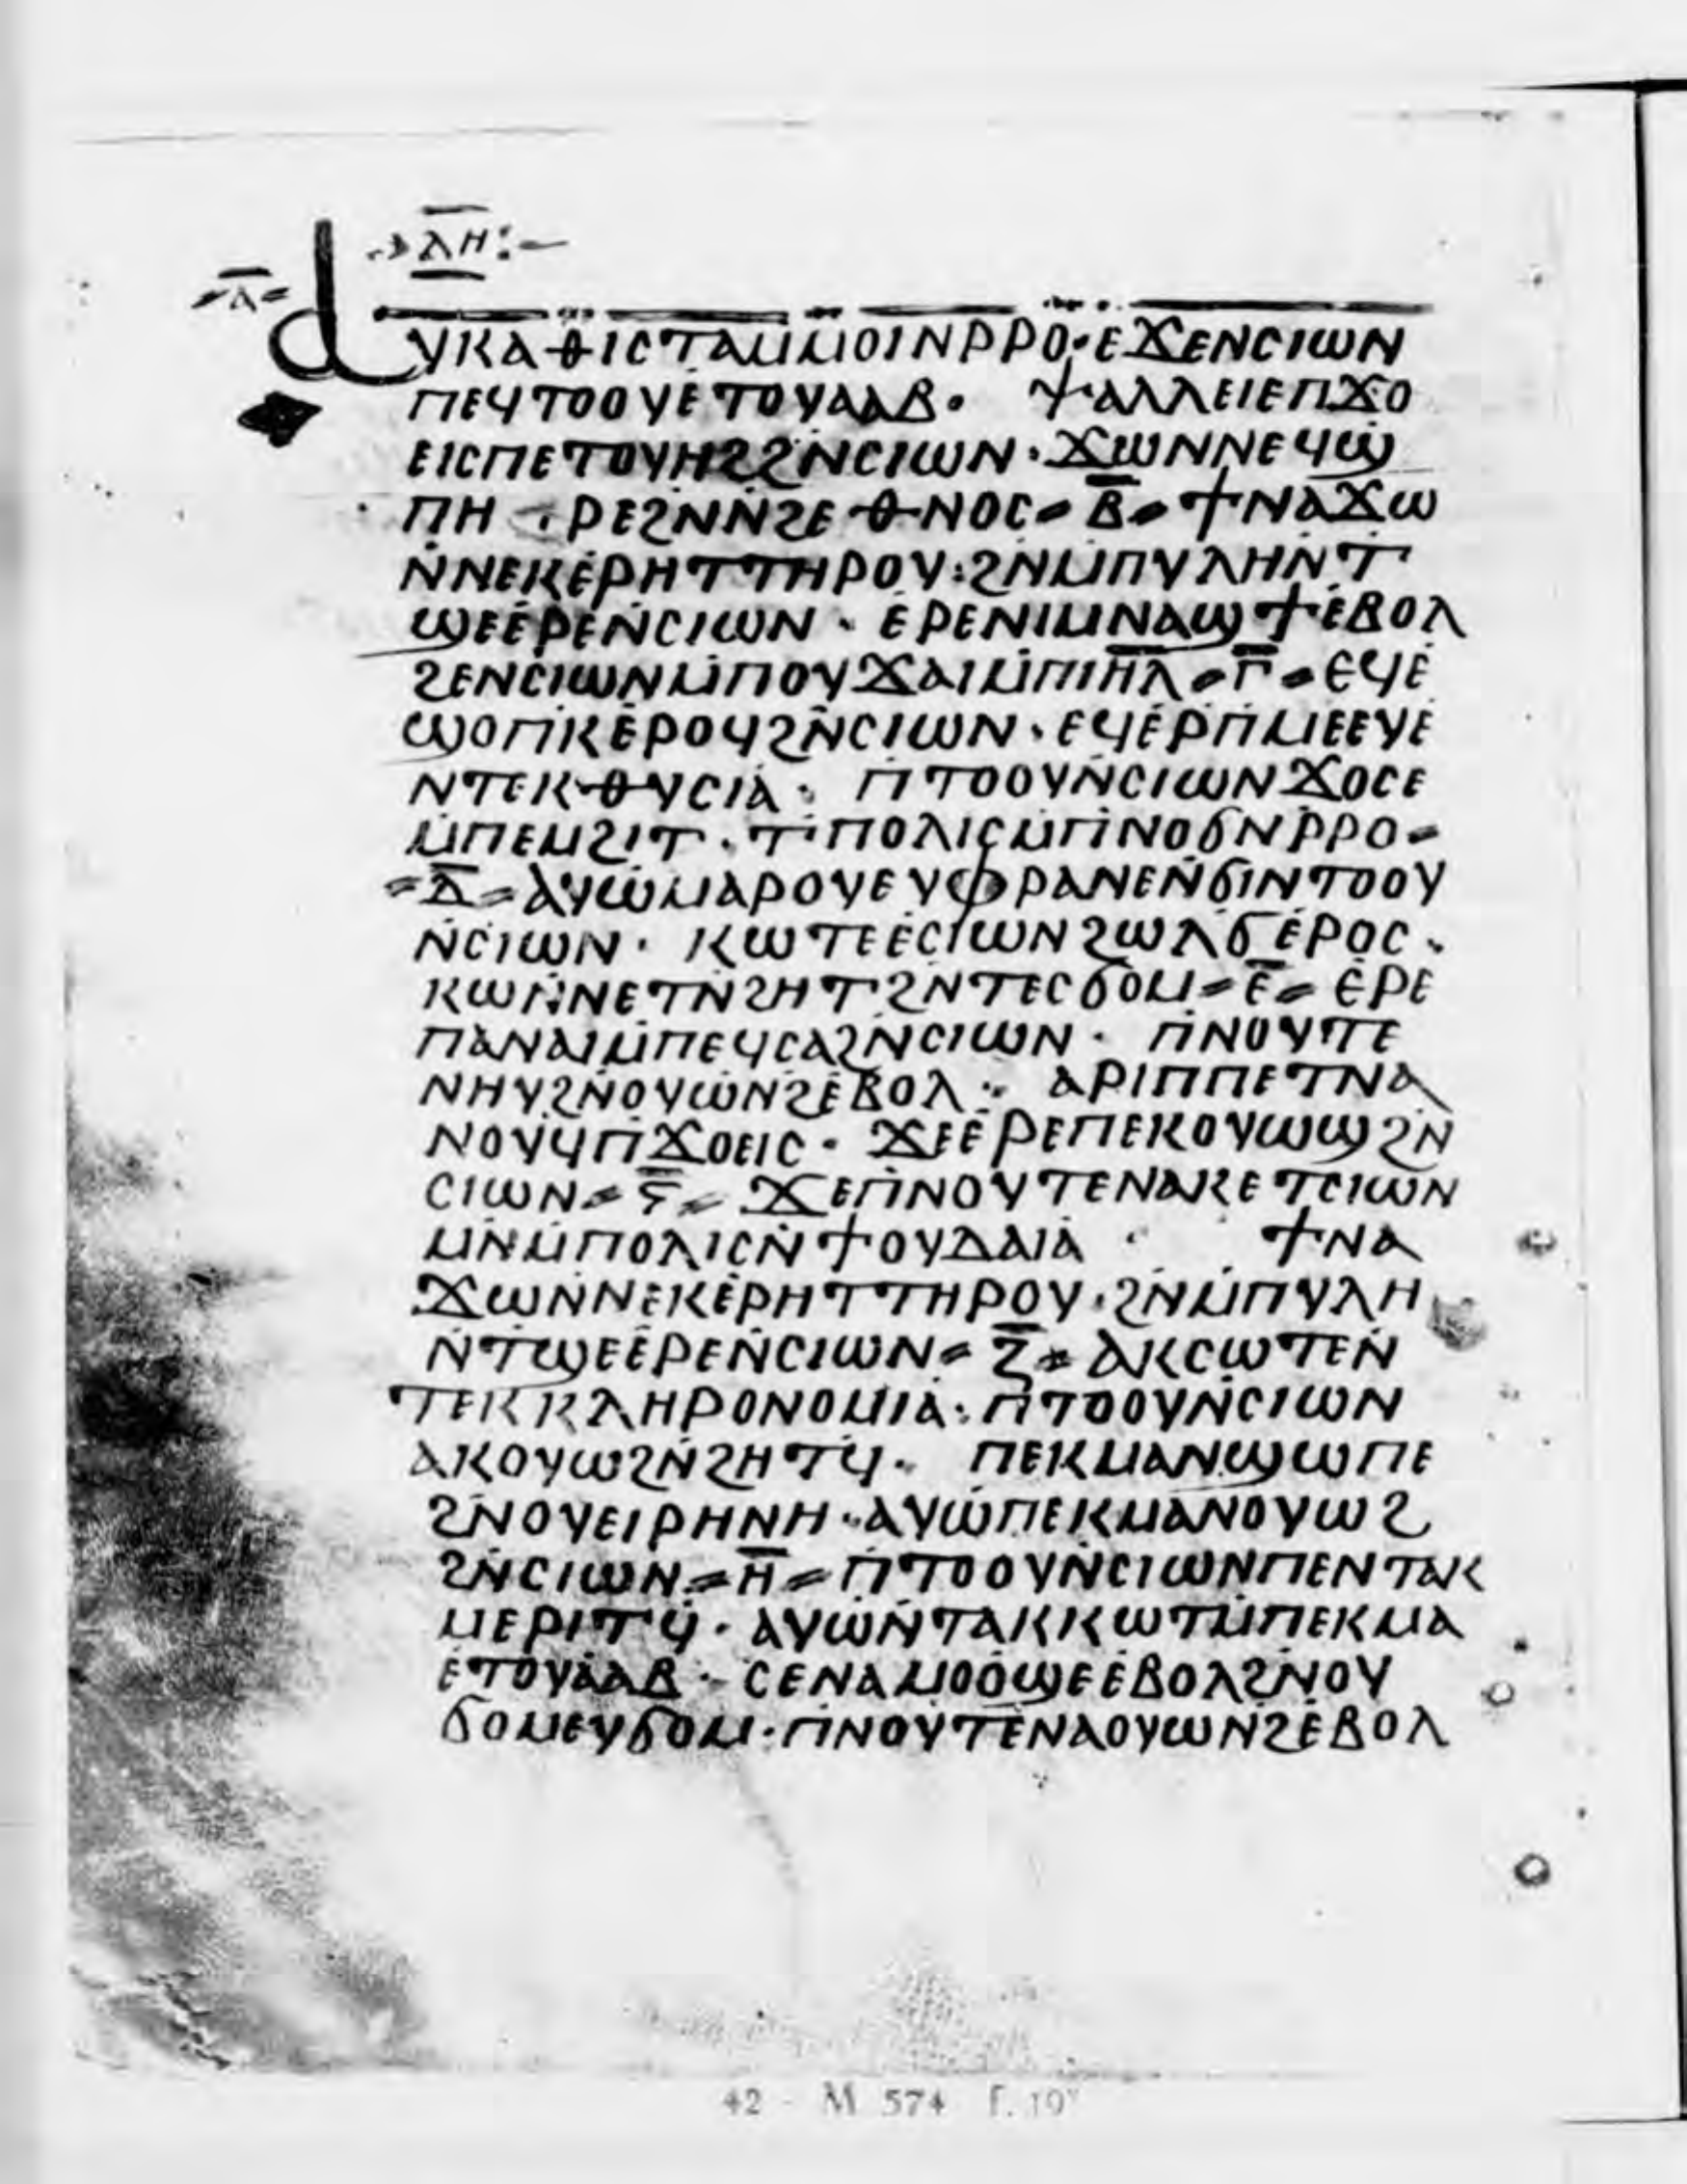 ⲗⲏ:
ⲁ̅
ⲁⲩⲕⲁⲑⲓⲥⲧⲁⲙⲙⲟⲓⲛⲣⲣⲟ·ⲉϫⲉⲛⲥⲓⲱⲛ
ⲡⲉϥⲧⲟⲟⲩⲉⲧⲟⲩⲁⲁⲃ· ⲯⲁⲗⲗⲉⲓⲉⲡϫⲟ
ⲉⲓⲥⲡⲉⲧⲟⲩⲏϩϩⲛⲥⲓⲱⲛ·ϫⲱⲛⲛⲉϥϣ
ⲡⲏⲣⲉϩⲛⲛϩⲉⲑⲛⲟⲥ= ⲃ̅ =ϯⲛⲁϫⲱ
ⲛ̇ⲛⲉⲕⲉ̇ⲣⲏⲧⲧⲏⲣⲟⲩ:ϩⲛⲙ̇ⲡⲩⲗⲏⲛ̇ⲧ
ϣⲉⲉ̇ⲣⲉⲛ̇ⲥⲓⲱⲛ· ⲉ̇ⲣⲉⲛⲓⲙⲛⲁϣϯⲉ̇ⲃⲟⲗ
ϩⲉⲛⲥⲓⲱⲛⲙ̇ⲡⲟⲩϫⲁⲓⲙ̇ⲡⲓⲏ̅ⲗ̅= ⲅ̅ =ⲉϥⲉ̇
ϣⲟⲡⲕⲉ̇ⲣⲟϥϩⲛ̇ⲥⲓⲱⲛ·ⲉϥⲉ̇ⲣⲡ̇ⲙⲉⲉⲩⲉ̇
ⲛⲧⲉⲕⲑⲩⲥⲓⲁ̇: ⲡ̇ⲧⲟⲟⲩⲛ̇ⲥⲓⲱⲛϫⲟⲥⲉ
ⲙ̇ⲡⲉⲙϩⲓⲧ·ⲧ̇ⲡⲟⲗⲓⲥⲙ̇ⲡ̇ⲛⲟϭⲛ̇ⲣⲣⲟ=
= ⲇ̅ =ⲁⲩⲱ̇ⲙⲁⲣⲟⲩⲉⲩⲫⲣⲁⲛⲉⲛ̇ϭⲓⲛⲧⲟⲟⲩ
ⲛ̇ⲥⲓⲱⲛ· ⲕⲱⲧⲉⲉ̇ⲥⲓⲱⲛϩⲱⲗϭⲉ̇ⲣⲟⲥ·
ⲕⲱⲛ̇ⲛⲉⲧⲛ̇ϩⲏⲧϩⲛ̇ⲧⲉⲥϭⲟⲙ= ⲉ̅ =ⲉ̇ⲣⲉ
ⲡⲁ̇ⲛⲁⲓⲙ̇ⲡⲉϥⲥⲁϩⲛ̇ⲥⲓⲱⲛ· ⲡ̇ⲛⲟⲩⲧⲉ
ⲛⲏⲩϩⲛ̇ⲟⲩⲱ̇ⲛϩⲉ̇ⲃⲟⲗ:· ⲁⲣⲓⲡⲡⲉⲧⲛⲁ
ⲛⲟⲩϥⲡ̇ϫⲟⲉⲓⲥ· ϫⲉⲉ̇ⲣⲉⲡⲉⲕⲟⲩⲱϣϩⲛ
ⲥⲓⲱⲛ= ⲋ̅ =ϫⲉⲡ̇ⲛⲟⲩⲧⲉⲛⲁⲕⲉⲧⲥⲓⲱⲛ
ⲙⲛ̇ⲙ̇ⲡⲟⲗⲓⲥⲛ̇ϯⲟⲩⲇⲁⲓⲁ̇· ϯⲛⲁ
ϫⲱⲛ̇ⲛⲉⲕⲉ̇ⲣⲏⲧⲧⲏⲣⲟⲩ·ϩⲛⲙ̇ⲡⲩⲗⲏ
ⲛ̇ⲧϣⲉⲉ̇ⲣⲉⲛ̇ⲥⲓⲱⲛ= ⲍ̅ =ⲁⲕⲥⲱⲧⲉⲛ̇
ⲧⲉⲕⲕⲗⲏⲣⲟⲛⲟⲙⲓⲁ̇:ⲡ̇ⲧⲟⲟⲩⲛ̇ⲥⲓⲱⲛ
ⲁⲕⲟⲩⲱϩⲛ̇ϩⲏⲧϥ̇· ⲡⲉⲕⲙⲁⲛ̇ϣⲱⲡⲉ
ϩⲛⲟⲩⲉⲓⲣⲏⲛⲏ·ⲁⲩⲱ̇ⲡⲉⲕⲙⲁⲛⲟⲩⲱϩ
ϩⲛ̇ⲥⲓⲱⲛ= ⲏ̅ =ⲡ̇ⲧⲟⲟⲩⲛ̇ⲥⲓⲱⲛⲡⲉⲛⲧⲁⲕ
ⲙⲉⲣⲓⲧϥ̇·ⲁⲩⲱ̇ⲛ̇ⲧⲁⲕⲕⲱⲧⲙ̇ⲡⲉⲕⲙⲁ
ⲉ̇ⲧⲟⲩⲁ̇ⲁⲃ· ⲥⲉⲛⲁⲙⲟⲟ̇ϣⲉⲉ̇ⲃⲟⲗϩⲛ̇ⲟⲩ
ϭⲟⲙⲉⲩϭⲟⲙ·ⲡ̇ⲛⲟⲩⲧⲉⲛⲁⲟⲩⲱⲛϩⲉ̇ⲃⲟⲗ
42 - M 574 f. 19ᵛ